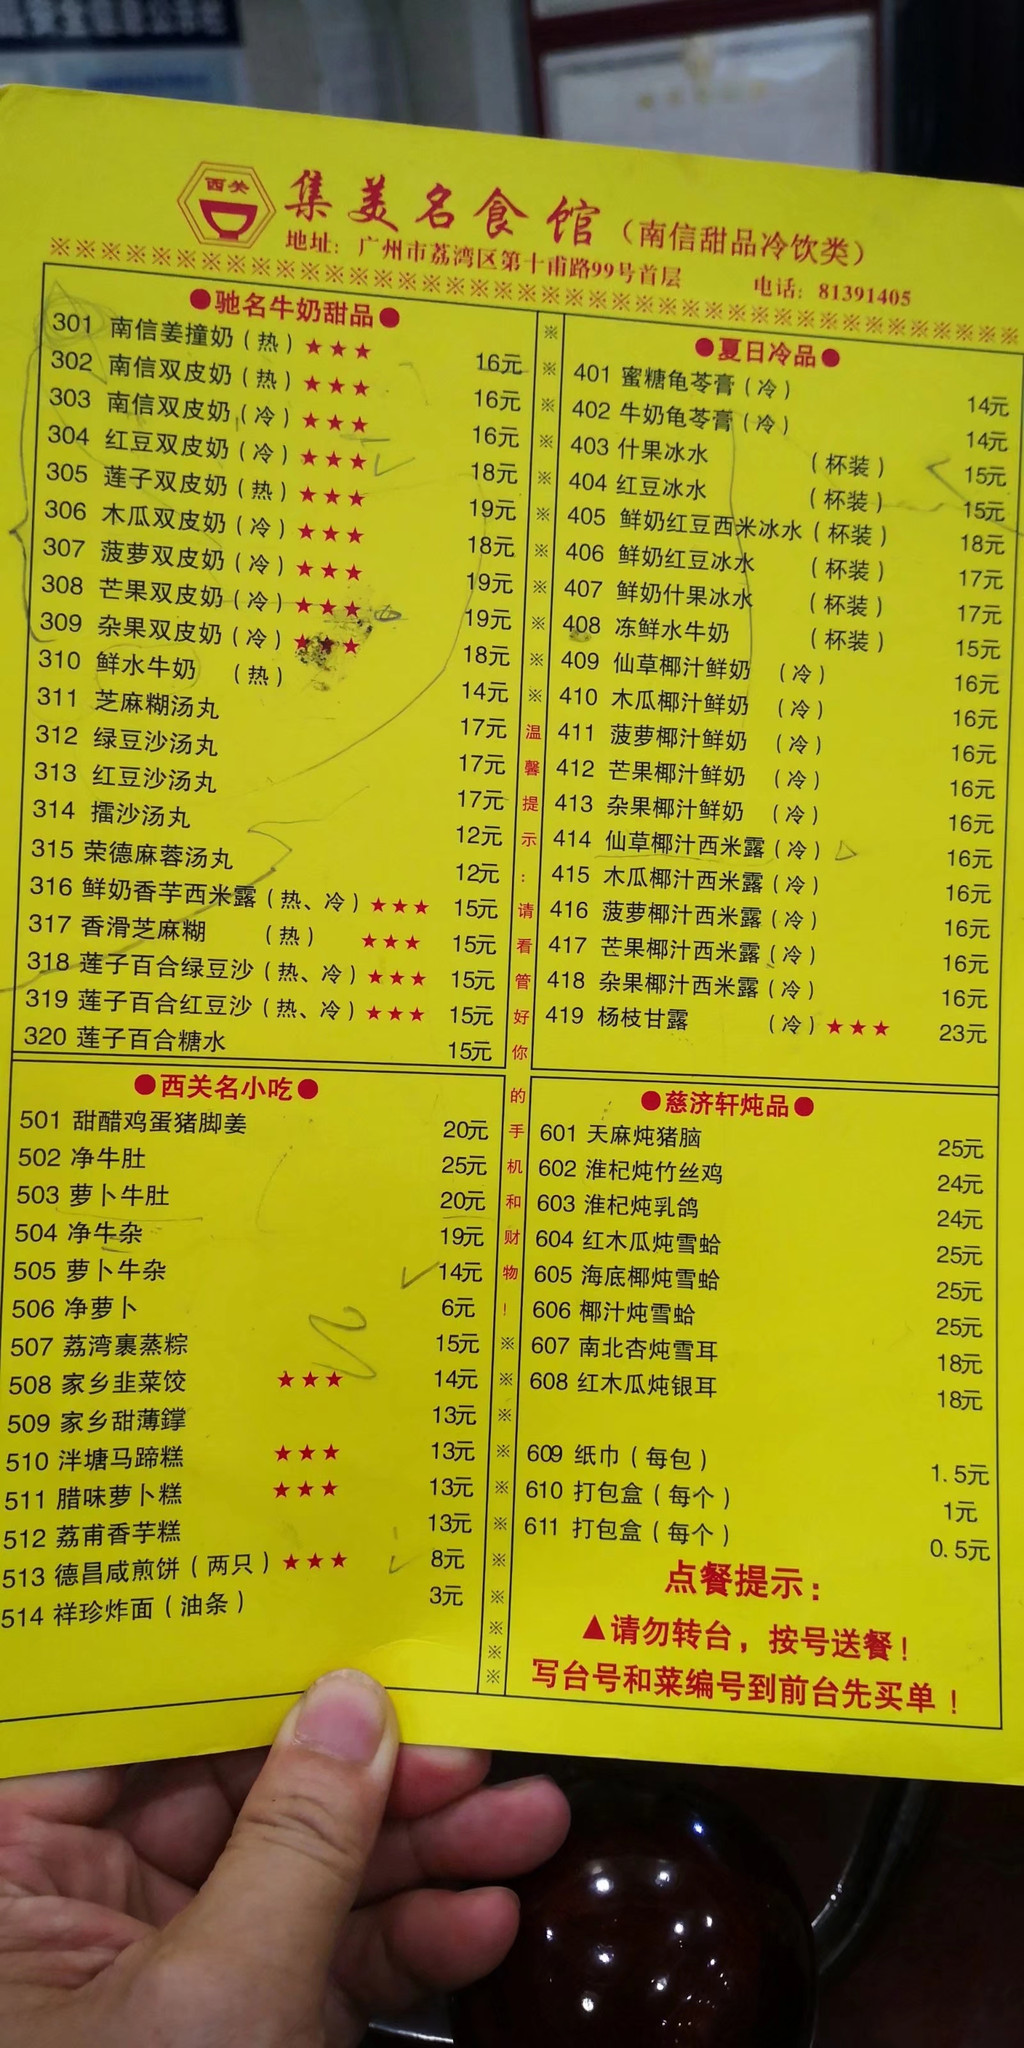 西关
集美名食馆（南信甜品冷饮类）
地址：广州市荔湾区第十甫路99号首层 电话：81391405
●驰名牛奶甜品●
301 南信姜撞奶（热）★★★ 16元
302 南信双皮奶（热）★★★ 16元
303 南信双皮奶（冷）★★★ 16元
304 红豆双皮奶（冷）★★★ 18元
305 莲子双皮奶（热）★★★ 19元
306 木瓜双皮奶（冷）★★★ 18元
307 菠萝双皮奶（冷）★★★ 19元
308 芒果双皮奶（冷）★★★ 19元
309 杂果双皮奶（冷）★★★ 18元
310 鲜水牛奶 （热） 14元
311 芝麻糊汤丸 17元
312 绿豆沙汤丸 17元
313 红豆沙汤丸 17元
314 擂沙汤丸 12元
315 荣德麻蓉汤丸 12元
316 鲜奶香芋西米露（热、冷）★★★ 15元
317 香滑芝麻糊 （热） ★★★ 15元
318 莲子百合绿豆沙（热、冷）★★★ 15元
319 莲子百合红豆沙（热、冷）★★★ 15元
320 莲子百合糖水 15元
●夏日冷品●
401 蜜糖龟苓膏（冷） 14元
402 牛奶龟苓膏（冷） 14元
403 什果冰水 （杯装） 15元
404 红豆冰水 （杯装） 15元
405 鲜奶红豆西米冰水（杯装） 18元
406 鲜奶红豆冰水 （杯装） 17元
407 鲜奶什果冰水 （杯装） 17元
408 冻鲜水牛奶 （杯装） 15元
409 仙草椰汁鲜奶 （冷） 16元
410 木瓜椰汁鲜奶 （冷） 16元
411 菠萝椰汁鲜奶 （冷） 16元
412 芒果椰汁鲜奶 （冷） 16元
413 杂果椰汁鲜奶 （冷） 16元
414 仙草椰汁西米露（冷） 16元
415 木瓜椰汁西米露（冷） 16元
416 菠萝椰汁西米露（冷） 16元
417 芒果椰汁西米露（冷） 16元
418 杂果椰汁西米露（冷） 16元
419 杨枝甘露 （冷）★★★ 23元
温馨提示：请看管好你的手机和财物！
●西关名小吃●
501 甜醋鸡蛋猪脚姜 20元
502 净牛肚 25元
503 萝卜牛肚 20元
504 净牛杂 19元
505 萝卜牛杂 14元
506 净萝卜 6元
507 荔湾裹蒸粽 15元
508 家乡韭菜饺 ★★★ 14元
509 家乡甜薄鐣 13元
510 泮塘马蹄糕 ★★★ 13元
511 腊味萝卜糕 ★★★ 13元
512 荔甫香芋糕 13元
513 德昌咸煎饼（两只）★★★ 8元
514 祥珍炸面（油条） 3元
●慈济轩炖品●
601 天麻炖猪脑 25元
602 淮杞炖竹丝鸡 24元
603 淮杞炖乳鸽 24元
604 红木瓜炖雪蛤 25元
605 海底椰炖雪蛤 25元
606 椰汁炖雪蛤 25元
607 南北杏炖雪耳 18元
608 红木瓜炖银耳 18元
609 纸巾（每包） 1.5元
610 打包盒（每个） 1元
611 打包盒（每个） 0.5元
点餐提示：
▲请勿转台，按号送餐！
写台号和菜编号到前台先买单！